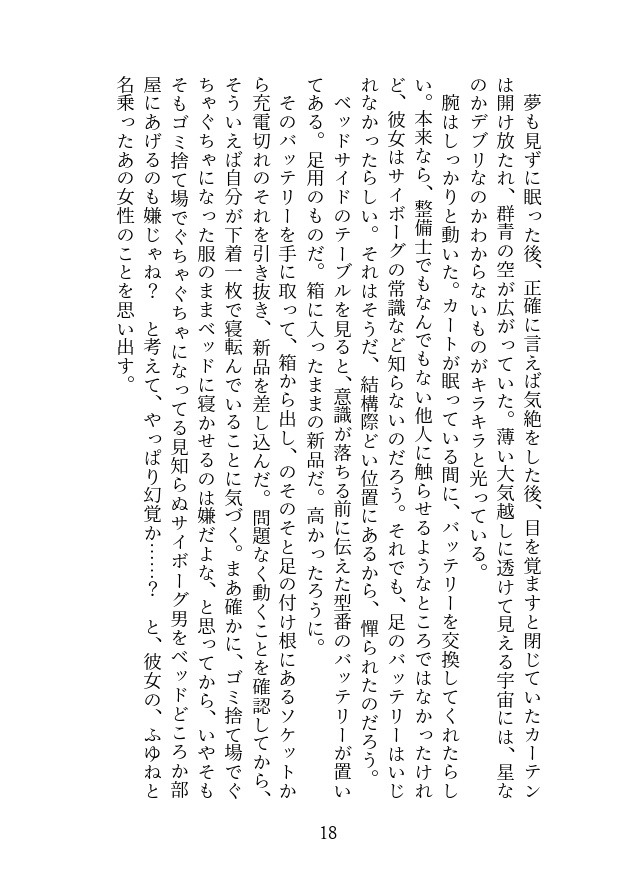 夢も見ずに眠った後、正確に言えば気絶をした後、目を覚ますと閉じていたカーテン
は開け放たれ、群青の空が広がっていた。薄い大気越しに透けて見える宇宙には、星な
のかデブリなのかわからないものがキラキラと光っている。
　腕はしっかりと動いた。カートが眠っている間に、バッテリーを交換してくれたらし
い。本来なら、整備士でもなんでもない他人に触らせるようなところではなかったけれ
ど、彼女はサイボーグの常識など知らないのだろう。それでも、足のバッテリーはいじ
れなかったらしい。それはそうだ、結構際どい位置にあるから、憚られたのだろう。
　ベッドサイドのテーブルを見ると、意識が落ちる前に伝えた型番のバッテリーが置い
てある。足用のものだ。箱に入ったままの新品だ。高かったろうに。
　そのバッテリーを手に取って、箱から出し、のそのそと足の付け根にあるソケットか
ら充電切れのそれを引き抜き、新品を差し込んだ。問題なく動くことを確認してから、
そういえば自分が下着一枚で寝転んでいることに気づく。まあ確かに、ゴミ捨て場でぐ
ちゃぐちゃになった服のままベッドに寝かせるのは嫌だよな、と思ってから、いやそも
そもゴミ捨て場でぐちゃぐちゃになってる見知らぬサイボーグ男をベッドどころか部
屋にあげるのも嫌じゃね？　と考えて、やっぱり幻覚か……？　と、彼女の、ふゆねと
名乗ったあの女性のことを思い出す。
18